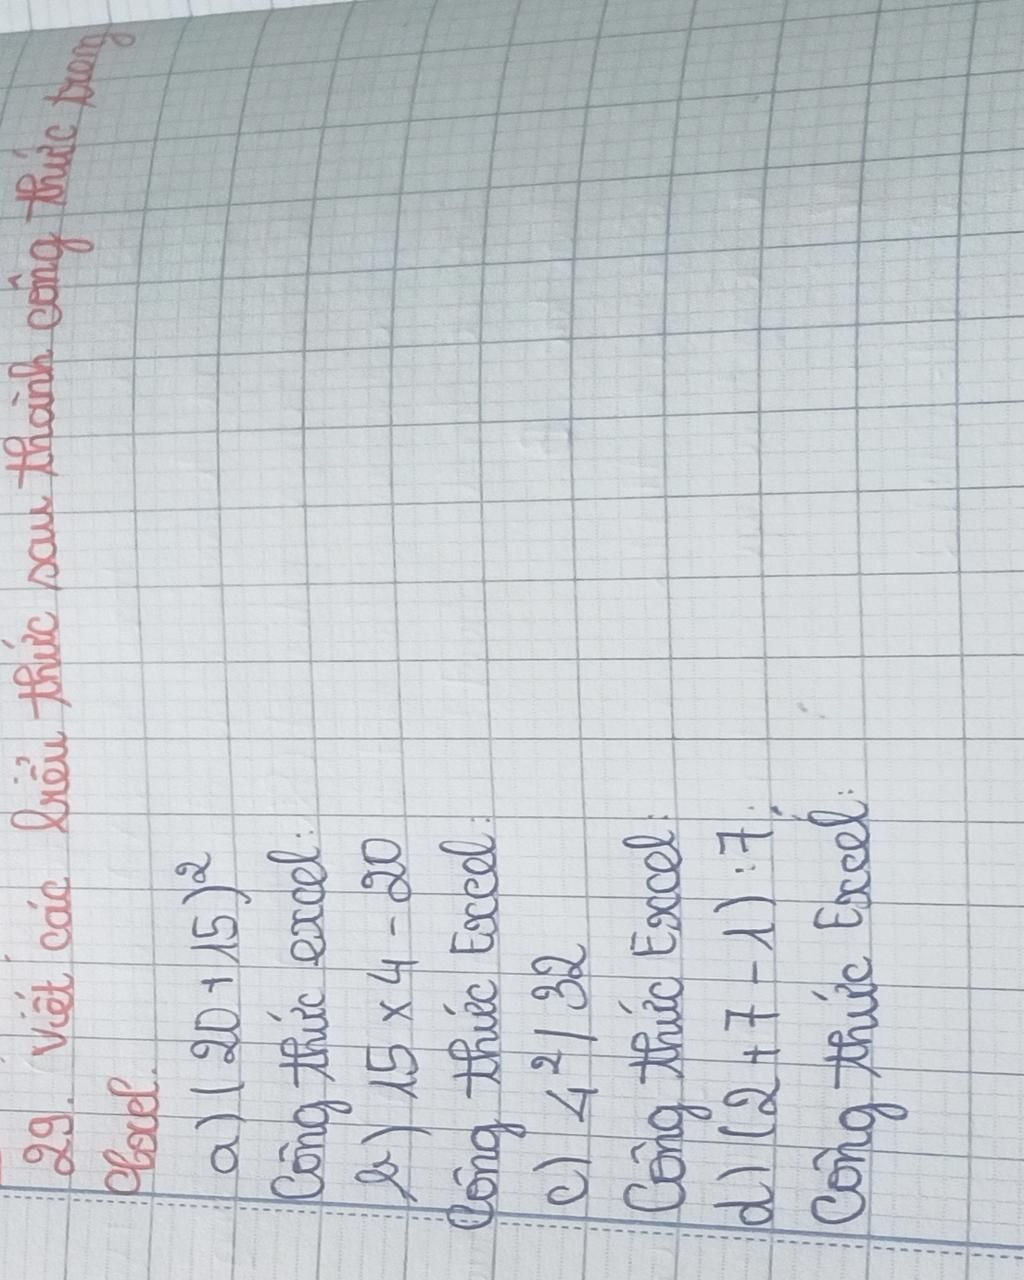 29. Viết các biểu thức sau thành công thức trong
Excel.
a) (20 + 15)²
Công thức excel:
b) 15 x 4 - 20
Công thức Excel:
c) 4² / 32
Công thức Excel:
d) (2 + 7 - 1) : 7.
Công thức Excel: